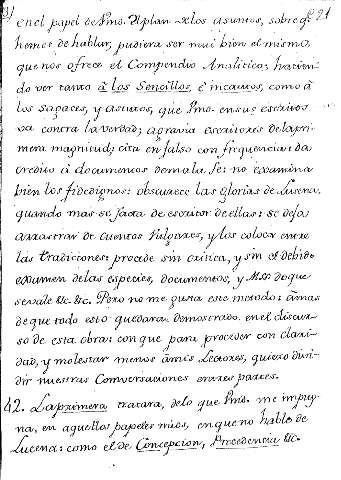 en el papel de Pmô. El plan de los asuntos, sobre q.e
hemos de hablar, pudiera ser mui bien el mismo,
que nos ofrece el Compendio Analitico; hacien
do ver tanto à los Sencillos, è incautos, como à
los sagaces, y astutos, que Pmô. en sus escritos
va contra la verdad; agravia escritores de la pri
mera magnitud; cita en falso con frequencia: da
credito à documentos de mala fe: no examina
bien los fidedignos: obscurece las Glorias de Lucena,
quando mas se jacta de escritor de ellas: se deja
arrastrar de cuentos vulgares, y los coloca entre
las tradiciones: procede sin critica, y sin el debido
examen de las especies, documentos, y Mss. de que
se vale &c. &c. Pero no me gusta este metodo: à mas
de que todo esto quedará demostrado en el discur
so de esta obra: con que para proceder con clari
dad, y molestar menos à mis Lectores, quiero divi
dir nuestras Conversaciones en tres partes.
42. La primera tratara, de lo que Pmô. me impug
na, en aquellos papeles mios, en que no hablo de
Lucena: como el de Concepcion, Procedencia &c.